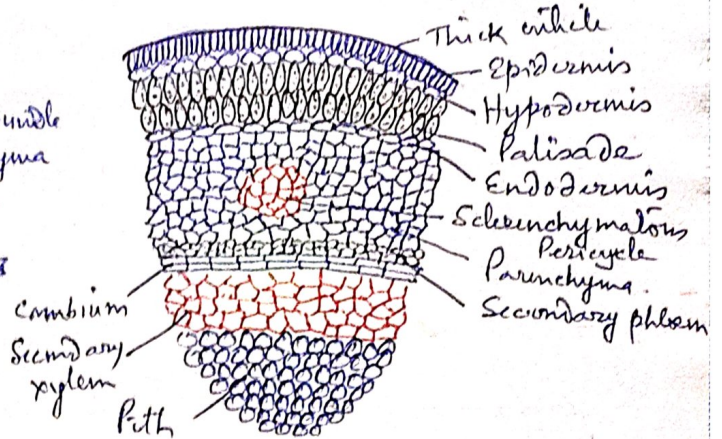 Thick cuticle
Epidermis
Hypodermis
Palisade
Endodermis
Sclerenchymatous
Pericycle
Parenchyma.
Secondary phloem
Cambium
Secondary
xylem
Pith